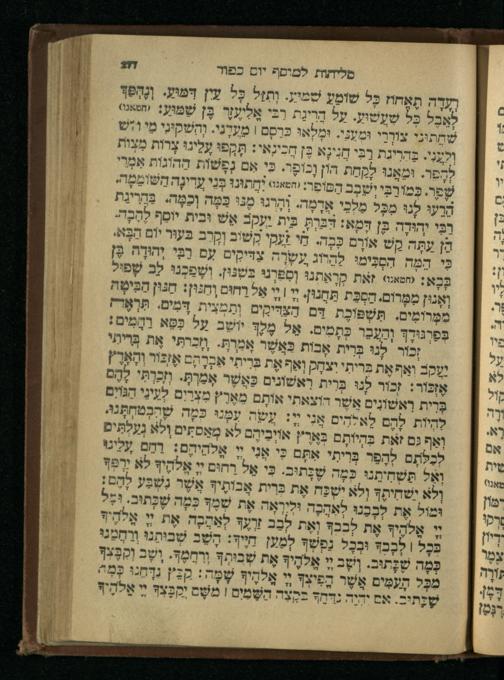 277
סליחות למוסף יום כפור
רְעָדָה תֶאֱחוֹז כָּל שׁוֹמֵעַ שְׁמוּעַ. וְתִזַּל כָּל עַיִן דִּמּוּעַ. וְנֶהְפַּךְ
לְאֵבֶל כָּל שַׁעֲשׁוּעַ. עַל הֲרִיגַת רַבִּי אֶלִיעֶזֶר בֶּן שַׁמּוּעַ: (חטאנו)
שִׁחֲתוּנִי צוֹרְרַי וּמְעַנַּי. וּמִלְאוּ כְרֵסָם מֵעֲדָנַי. וְהִשְׁקוּנִי מֵי רוֹשׁ
וְלַעֲנִי. בַּהֲרִיגַת רַבִּי חֲנִינָא בֶּן חֲכִינַאי: תָּקְפוּ עָלֵינוּ צָרוֹת מִצְוֹת
לְהָפֵר. וּמֵאֲנוּ לָקַחַת הוֹן וְכוֹפֶר. כִּי אִם נְפָשׁוֹת הַהוֹגוֹת אִמְרֵי
שֶׁפֶר. כְּמוֹ רַבִּי יְשֵׁבָב הַסּוֹפֵר: (חטאנו) יִחֲתוּנוּ בְּנֵי עֲדִינָה הַשּׁוֹמֵמָה.
הֵרֵעוּ לָנוּ מִכָּל מַלְכֵי אֲדָמָה. וְהָרְגוּ מֶנּוּ כַּמָּה וְכַמָּה. בַּהֲרִיגַת
רַבִּי יְהוּדָה בֶּן דָּמָא: דִּבַּרְתָּ בֵּית יַעֲקֹב אֵשׁ וּבֵית יוֹסֵף לֶהָבָה.
הֵן עַתָּה קַשׁ אוֹרָם כִּבָּה. חַי זַעֲקִי קְשׁוֹב וְקָרֵב בִּעוּר יוֹם הַבָּא.
כִּי הֵמָּה הִסְכִּימוּ לַהֲרוֹג עֲשָׂרָה צַדִּיקִים עִם רַבִּי יְהוּדָה בֶּן
בָּבָא: (חטאנו) זֹאת קְרָאַתְנוּ וְסִפַּרְנוּ בְּשִׁנּוּן. וְשָׁפַכְנוּ לֵב שָׁפוּל
וְאָנוּן מִמָּרוֹם. הַסְכֵּת תַּחֲנוּן. יְיָ יְיָ אֵל רַחוּם וְחַנּוּן: חַנּוּן הַבִּיטָה
מִמְּרוֹמִים. תִּשְׁפּוֹכֶת דַּם הַצַּדִּיקִים וְתַמְצִית דָּמִים. תִּרְאֶה
בְּפַרְגּוֹדָךְ וְהַעֲבֵר כְּתָמִים. אֵל מֶלֶךְ יוֹשֵׁב עַל כִּסֵּא רַחֲמִים:
זְכוֹר לָנוּ בְּרִית אָבוֹת כַּאֲשֶׁר אָמַרְתָּ. וְזָכַרְתִּי אֶת בְּרִיתִי
יַעֲקֹב וְאַף אֶת בְּרִיתִי יִצְחָק וְאַף אֶת בְּרִיתִי אַבְרָהָם אֶזְכּוֹר וְהָאָרֶץ
אֶזְכּוֹר: זְכוֹר לָנוּ בְּרִית רִאשׁוֹנִים כַּאֲשֶׁר אָמַרְתָּ. וְזָכַרְתִּי לָהֶם
בְּרִית רִאשׁוֹנִים אֲשֶׁר הוֹצֵאתִי אוֹתָם מֵאֶרֶץ מִצְרַיִם לְעֵינֵי הַגּוֹיִם
לִהְיוֹת לָהֶם לֵאלֹהִים אֲנִי יְיָ: עֲשֵׂה עִמָּנוּ כְּמָה שֶׁהִבְטַחְתָּנוּ.
וְאַף גַּם זֹאת בִּהְיוֹתָם בְּאֶרֶץ אוֹיְבֵיהֶם לֹא מְאַסְתִּים וְלֹא גְעַלְתִּים
לְכַלֹּתָם לְהָפֵר בְּרִיתִי אִתָּם כִּי אֲנִי יְיָ אֱלֹהֵיהֶם: רַחֵם עָלֵינוּ
וְאַל תַּשְׁחִיתֵנוּ כְּמָה שֶׁכָּתוּב. כִּי אֵל רַחוּם יְיָ אֱלֹהֶיךָ לֹא יַרְפְּךָ
וְלֹא יַשְׁחִיתֶךָ וְלֹא יִשְׁכַּח אֶת בְּרִית אֲבוֹתֶיךָ אֲשֶׁר נִשְׁבַּע לָהֶם:
וּמוֹל אֶת לְבָבֵנוּ לְאַהֲבָה וּלְיִרְאָה אֶת שְׁמֶךָ כְּמָה שֶׁכָּתוּב. וּמָל
יְיָ אֱלֹהֶיךָ אֶת לְבָבְךָ וְאֶת לְבַב זַרְעֶךָ לְאַהֲבָה אֶת יְיָ אֱלֹהֶיךָ
בְּכָל לְבָבְךָ וּבְכָל נַפְשְׁךָ לְמַעַן חַיֶּיךָ: הָשֵׁב שְׁבוּתֵנוּ וְרַחֲמֵנוּ
כְּמָה שֶׁכָּתוּב. וְשָׁב יְיָ אֱלֹהֶיךָ אֶת שְׁבוּתְךָ וְרִחֲמֶךָ. וְשָׁב וְקִבֶּצְךָ
מִכָּל הָעַמִּים אֲשֶׁר הֱפִיצְךָ יְיָ אֱלֹהֶיךָ שָׁמָּה: קַבֵּץ נִדָּחֵנוּ כְּמָה
שֶׁכָּתוּב. אִם יִהְיֶה נִדַּחֲךָ בִּקְצֵה הַשָּׁמָיִם מִשָּׁם יְקַבֶּצְךָ יְיָ אֱלֹהֶיךָ